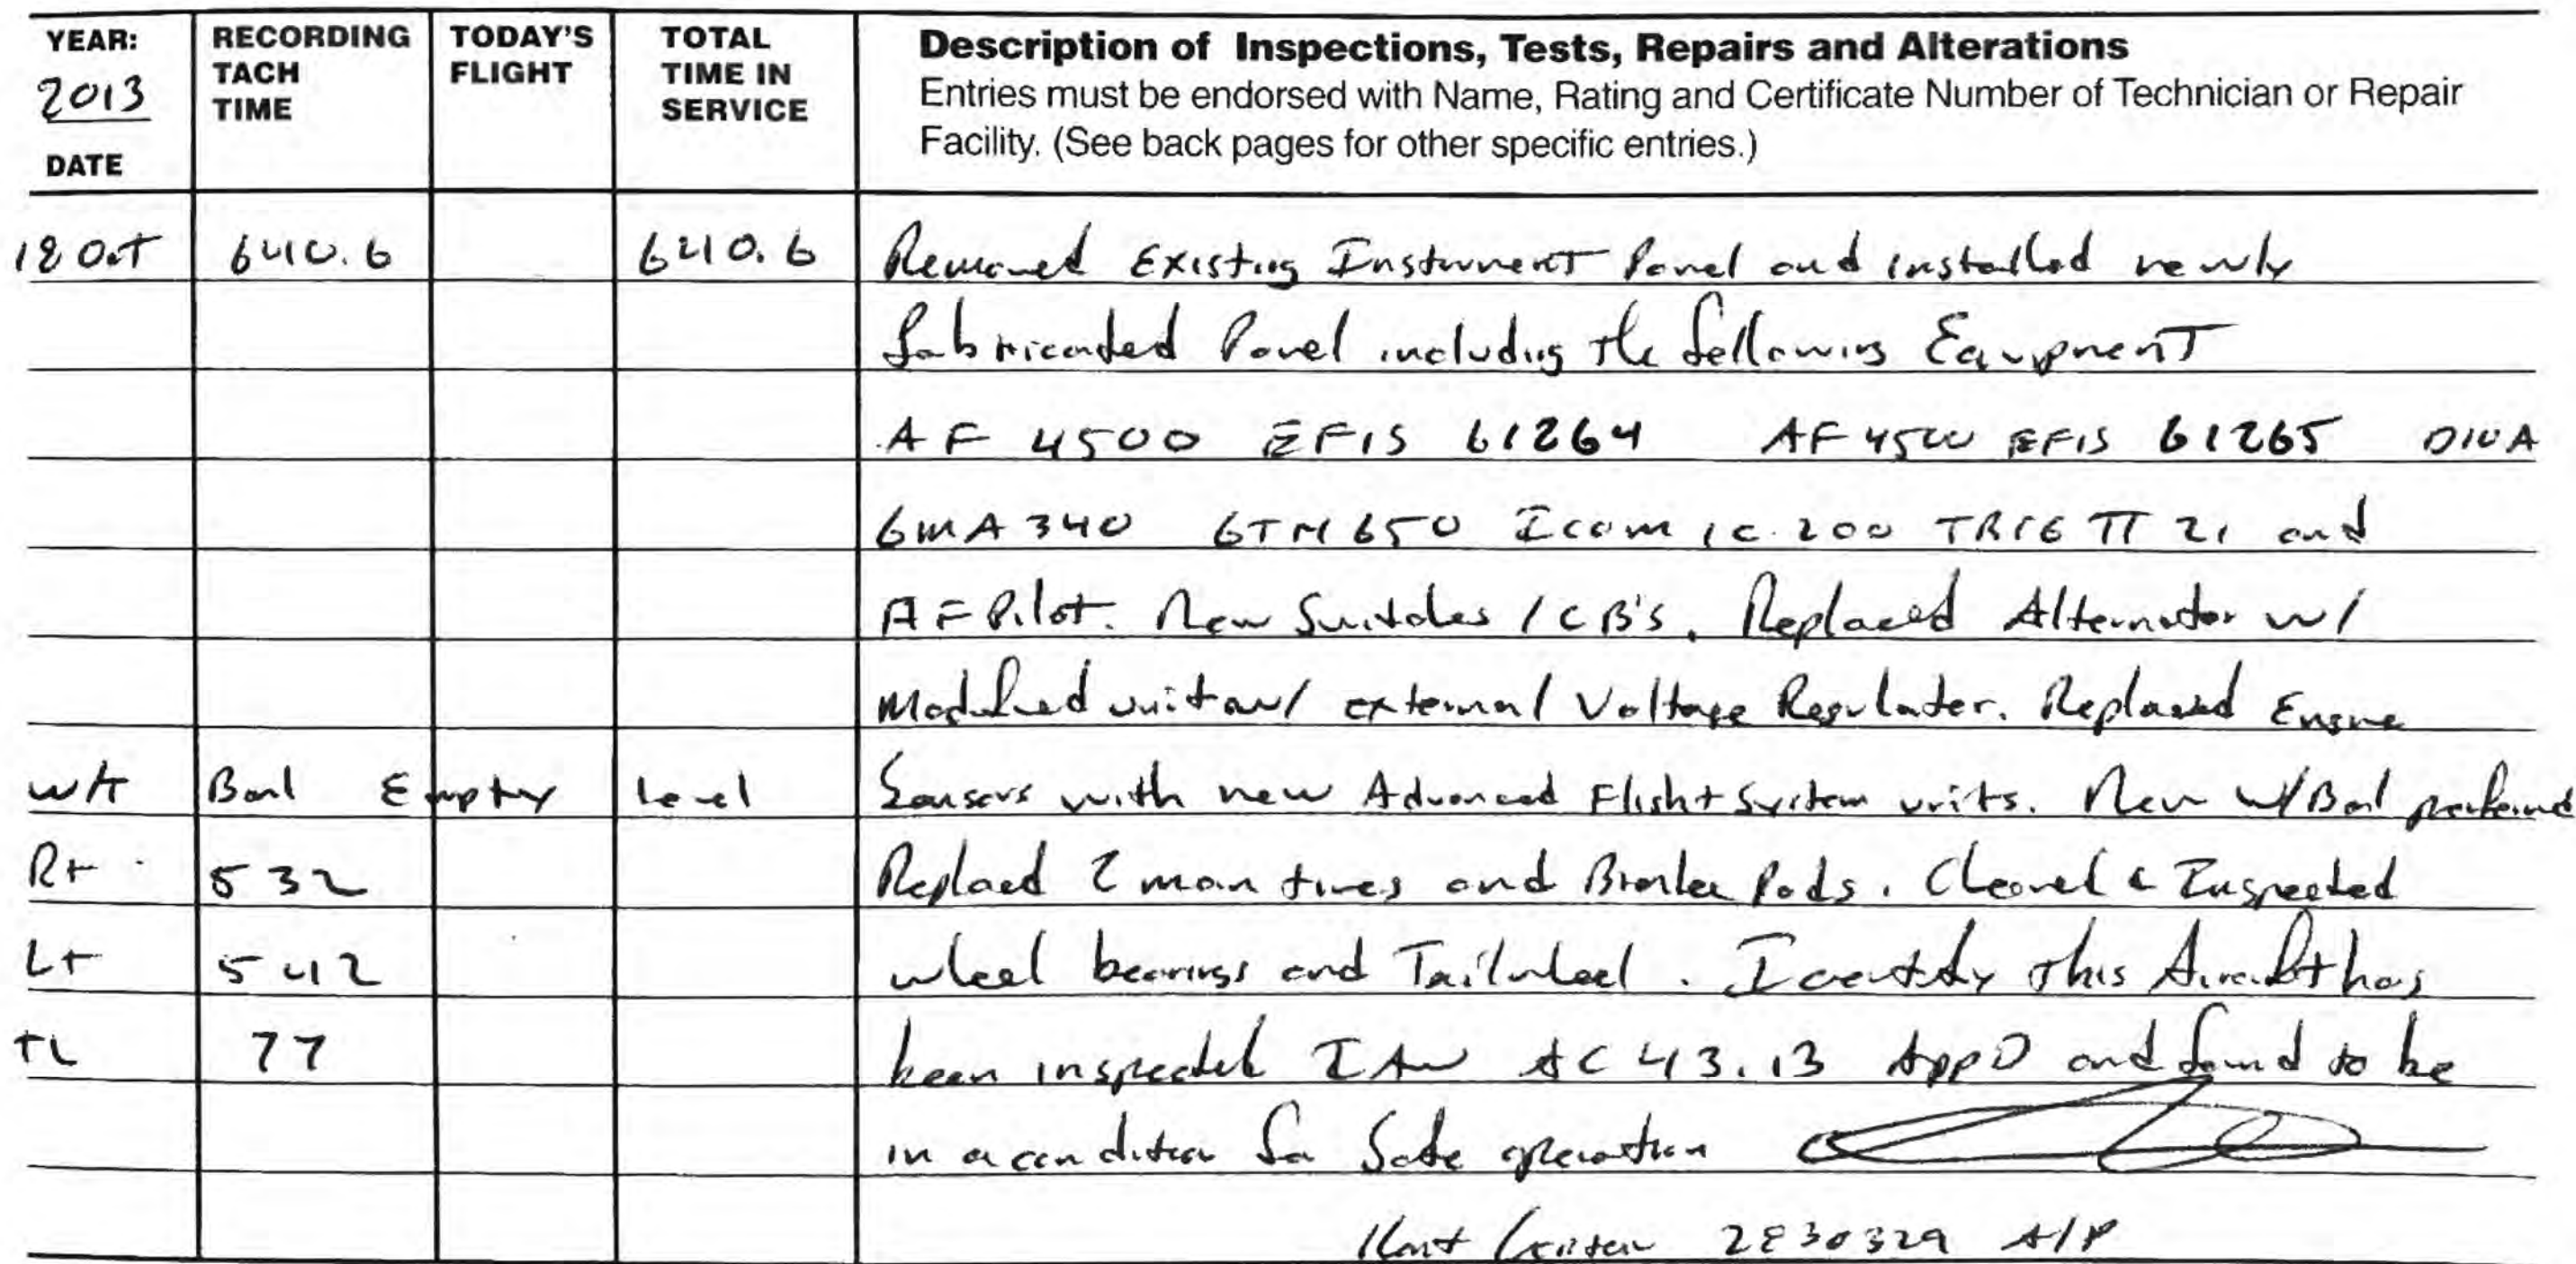 YEAR: 2013 DATE
RECORDING TACH TIME
TODAY'S FLIGHT
TOTAL TIME IN SERVICE
Description of Inspections, Tests, Repairs and Alterations
Entries must be endorsed with Name, Rating and Certificate Number of Technician or Repair
Facility. (See back pages for other specific entries.)
18 Oct 640.6 640.6 Removed Existing Instrument Panel and installed newly
fabricated Panel including the following Equipment
AF 4500 EFIS 61264 AF 4500 EFIS 61265 D10A
GMA 340 GTN 650 Icom IC 200 TRIG TT 21 and
AF Pilot. New Switches / CB's. Replaced Alternator w/
Modified unit w/ external Voltage Regulator. Replaced Engine
Wt Bal Empty level Sensors with new Advanced Flight System units. New W/Bal performed
Rt 532 Replaced 2 main tires and Brake Pads. Cleaned & Inspected
Lt 542 wheel bearings and Tailwheel. I certify this Aircraft has
TL 77 been inspected IAW AC 43.13 App D and found to be
in a condition for Safe operation
2830329 A/P